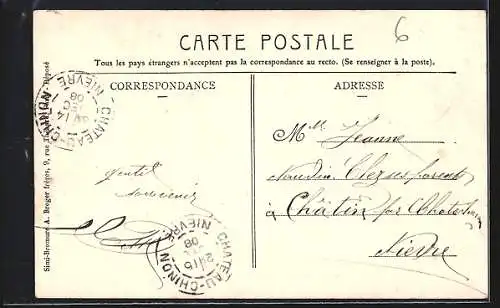 6
CARTE POSTALE
Tous les pays étrangers n'acceptent pas la correspondance au recto. (Se renseigner à la poste).
CORRESPONDANCE
ADRESSE
Simi-Bromure A. Breger frères, 9, rue
CHATEAU-CHINON
NIÈVRE
14
08
Gentil
souvenir
CHATEAU-CHINON
NIÈVRE
08
Mlle Jeanne
Naudin Chez ses parents
à Châtin par Chateau
Nièvre